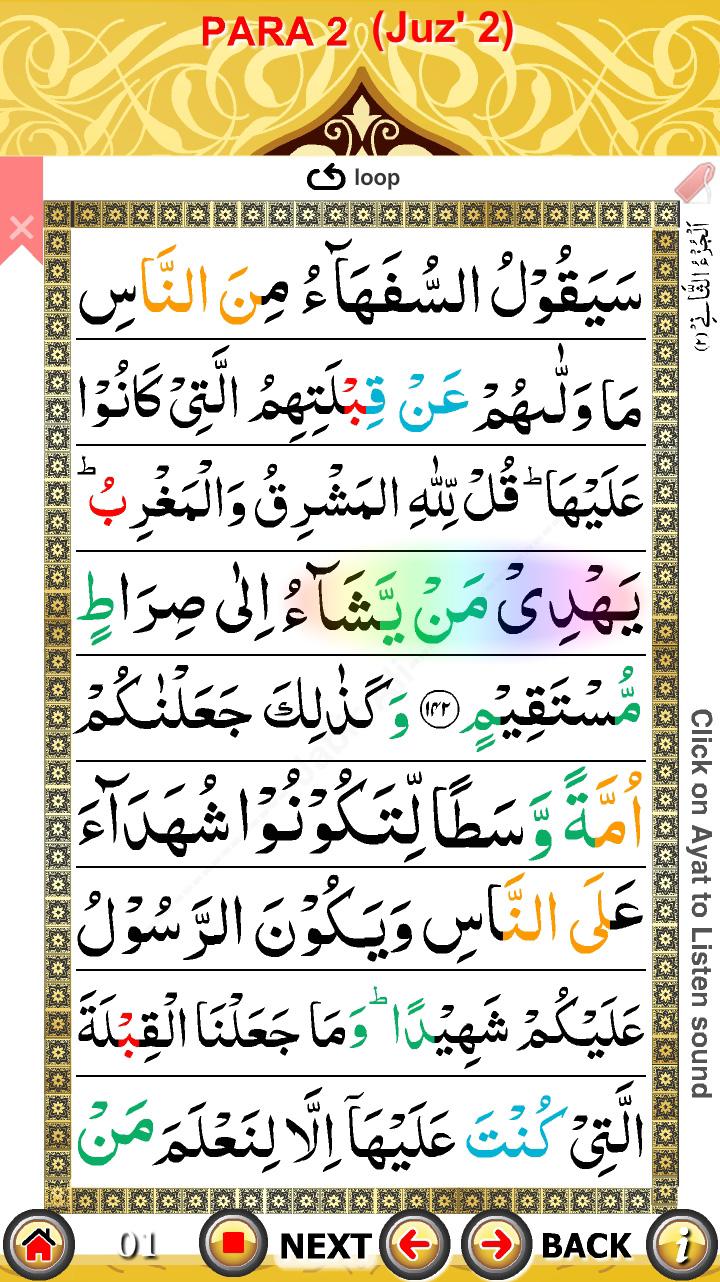 PARA 2 (Juz' 2)
loop
اَلْجُزْءُ الثَّانِيْ (٢)
سَيَقُوْلُ السُّفَهَآءُ مِنَ النَّاسِ
مَا وَلّٰىهُمْ عَنْ قِبْلَتِهِمُ الَّتِيْ كَانُوْا
عَلَيْهَا ؕ قُلْ لِّلّٰهِ الْمَشْرِقُ وَالْمَغْرِبُ ؕ
يَهْدِيْ مَنْ يَّشَآءُ اِلٰى صِرَاطٍ
مُّسْتَقِيْمٍ ﴿۱۴۲﴾ وَكَذٰلِكَ جَعَلْنٰكُمْ
اُمَّةً وَّسَطًا لِّتَكُوْنُوْا شُهَدَآءَ
عَلَى النَّاسِ وَيَكُوْنَ الرَّسُوْلُ
عَلَيْكُمْ شَهِيْدًا ؕ وَمَا جَعَلْنَا الْقِبْلَةَ
الَّتِيْ كُنْتَ عَلَيْهَآ اِلَّا لِنَعْلَمَ مَنْ
Click on Ayat to Listen sound
01 NEXT BACK i